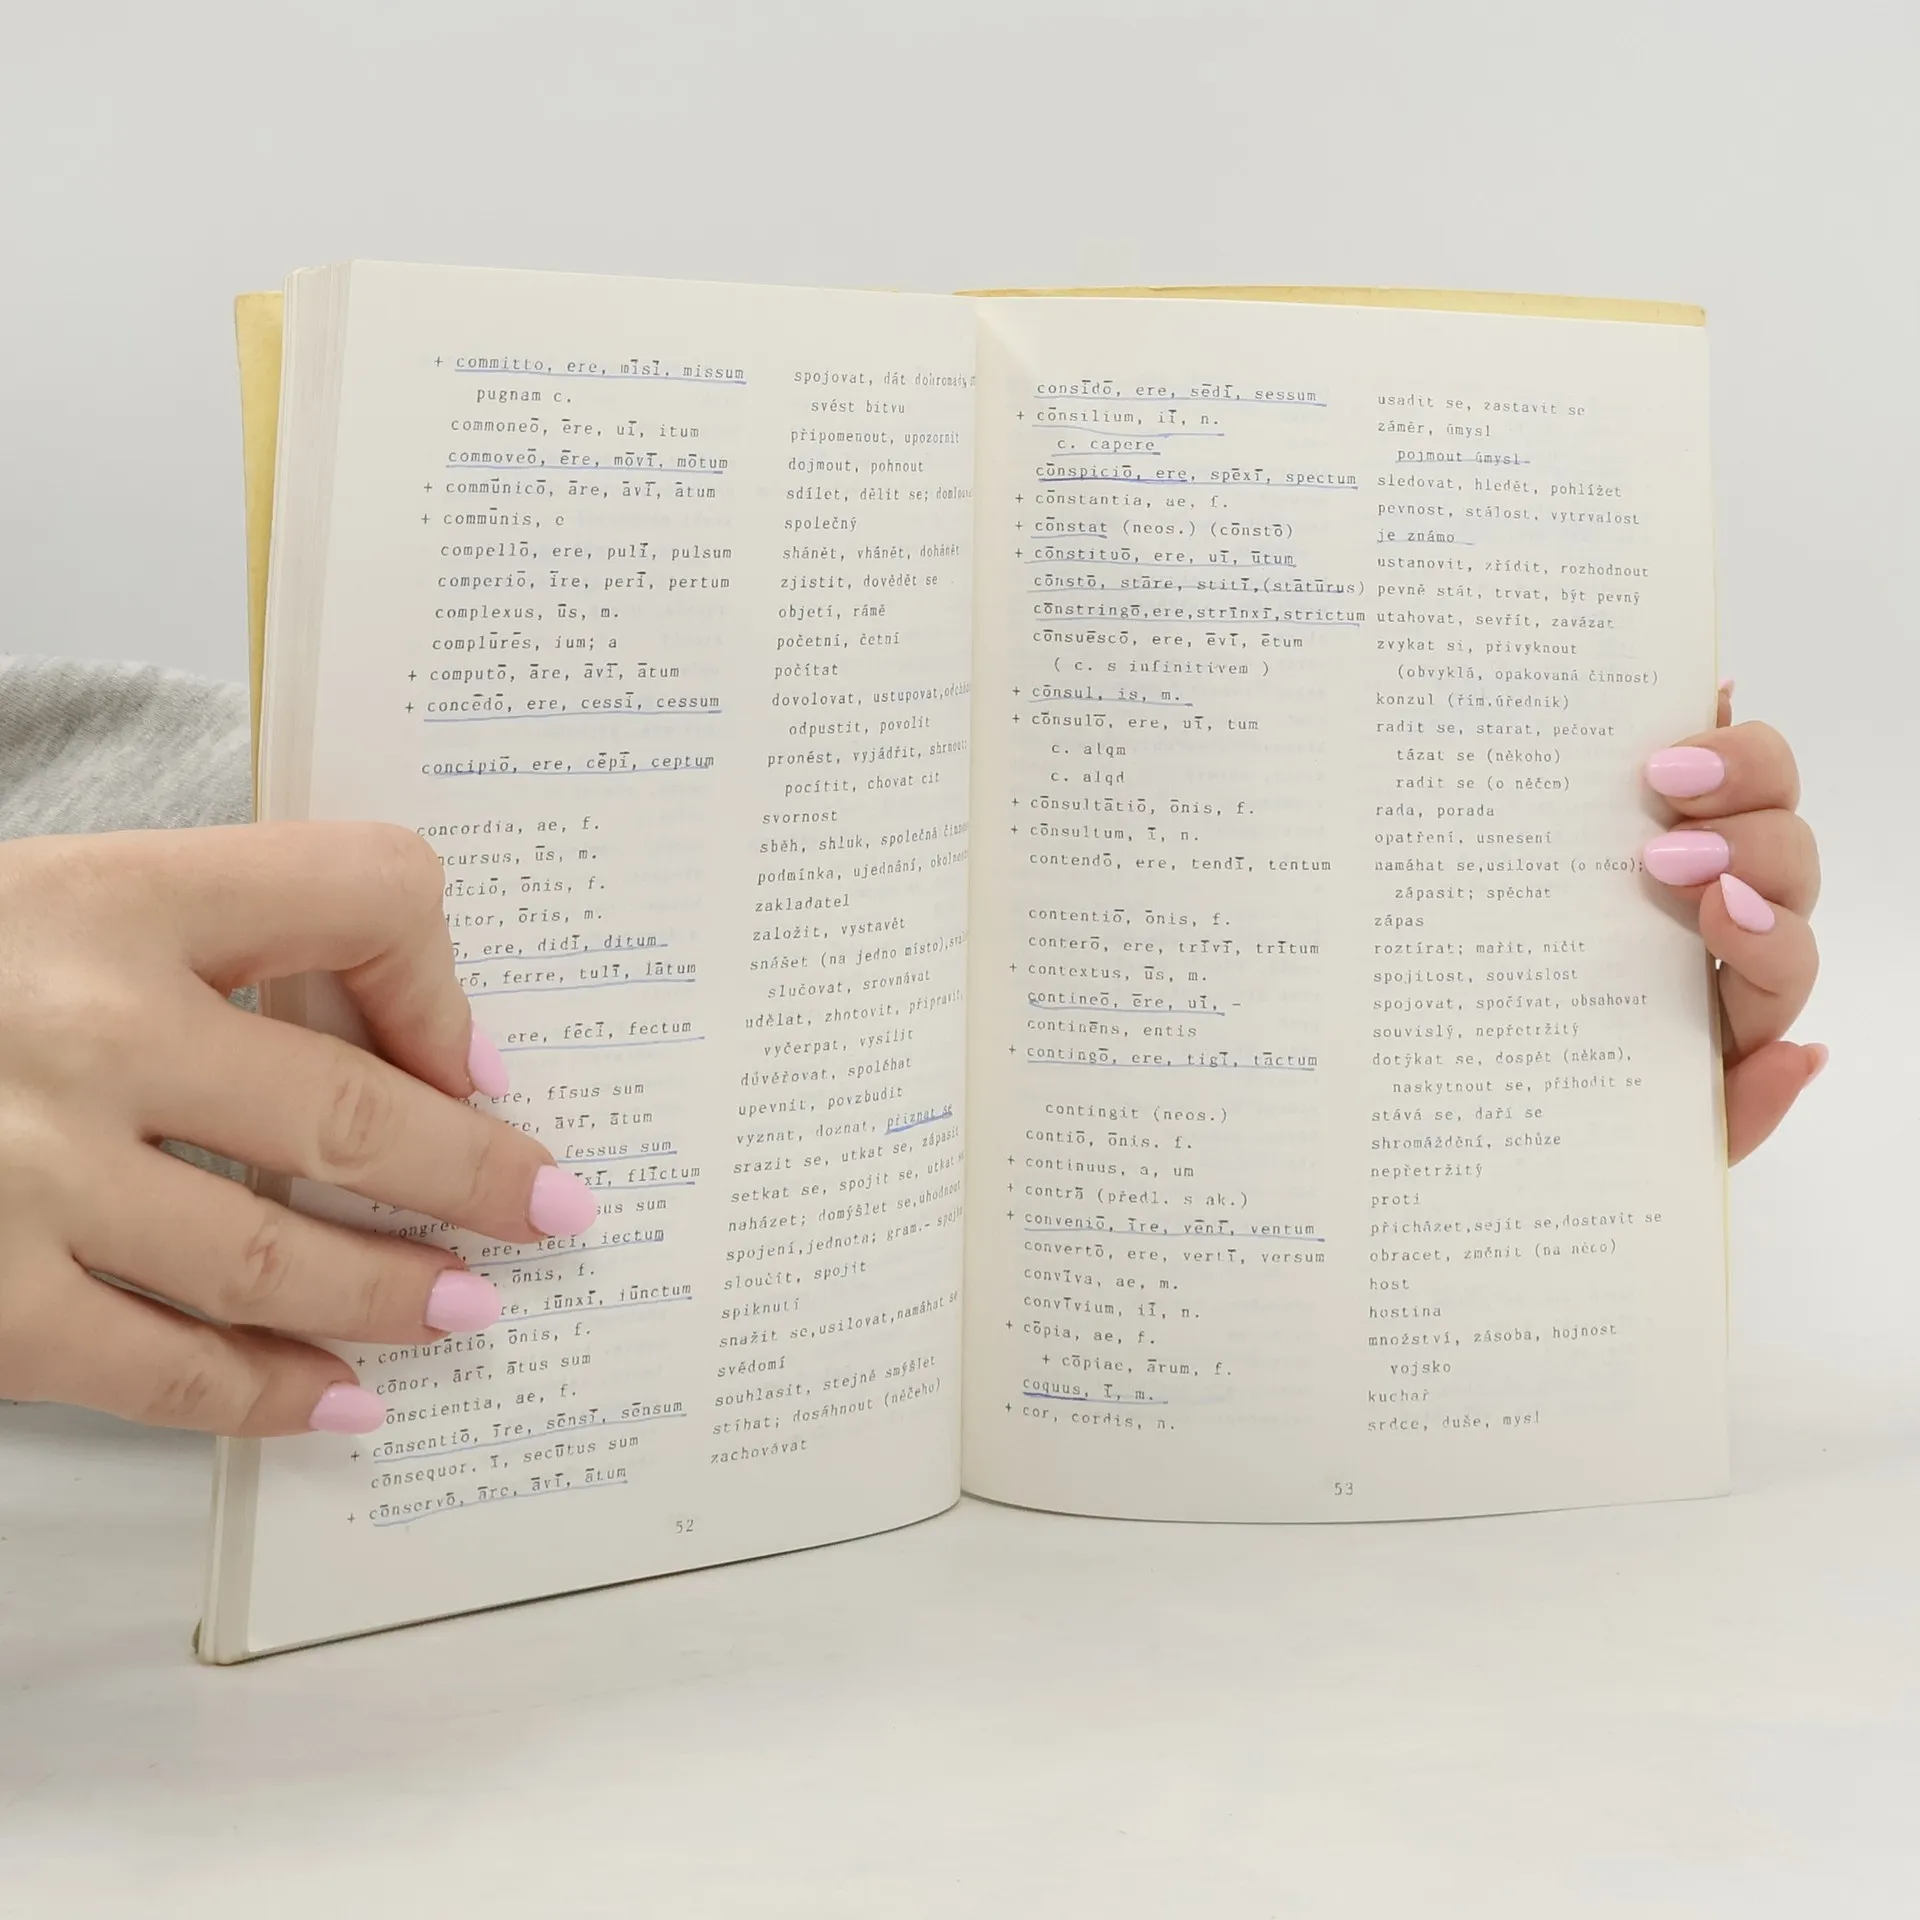 + committo, ere, mīsī, missum
spojovat, dát
pugnam c.
svést bitvu
commoneō, ēre, uī, itum
připomenout, upozornit
commoveō, ēre, mōvī, mōtum
dojmout, pohnout
+ commūnicō, āre, āvī, ātum
sdílet, dělit se;
+ commūnis, e
společný
compellō, ere, pulī, pulsum
shánět, vhánět, dohánět
comperiō, īre, perī, pertum
zjistit, dovědět se
complexus, ūs, m.
objetí, rámě
complūrēs, ium; a
početní, četní
+ computō, āre, āvī, ātum
počítat
+ concēdō, ere, cessī, cessum
dovolovat, ustupovat,
odpustit, povolit
concipiō, ere, cēpī, ceptum
pronést, vyjádřit,
pocítit, chovat cit
concordia, ae, f.
svornost
ūs, m.
sběh, shluk, společná
ōnis, f.
podmínka, ujednání,
ōris, m.
zakladatel
ere, didī, ditum
založit, vystavět
ferre, tulī, lātum
snášet (na jedno místo),
slučovat, srovnávat
ere, fēcī, fectum
udělat, zhotovit, připravit,
vyčerpat, vysílit
ere, fīsus sum
důvěřovat, spoléhat
āvī, ātum
upevnit, povzbudit
fessus sum
vyznat, doznat, přiznat se
flīctum
srazit se, utkat se, zápasit
sum
setkat se, spojit se, utkat
ere, iēcī, iectum
naházet; domýšlet se, uhodnout
ōnis, f.
spojení, jednota; gram.-
iūnxī, iūnctum
sloučit, spojit
+ coniurātiō, ōnis, f.
spiknutí
cōnor, ārī, ātus sum
snažit se, usilovat, namáhat se
ae, f.
svědomí
+ cōnsentiō, īre, sēnsī, sēnsum
souhlasit, stejně smýšlet
cōnsequor, ī, secūtus sum
stíhat; dosáhnout (něčeho)
+ cōnservō, āre, āvī, ātum
zachovávat
52
consīdō, ere, sēdī, sessum
usadit se, zastavit se
+ cōnsilium, iī, n.
záměr, úmysl
c. capere
pojmout úmysl
cōnspiciō, ere, spēxī, spectum
sledovat, hledět, pohlížet
+ cōnstantia, ae, f.
pevnost, stálost, vytrvalost
+ cōnstat (neos.) (cōnstō)
je známo
+ cōnstituō, ere, uī, ūtum
ustanovit, zřídit, rozhodnout
cōnstō, stāre, stitī,(stātūrus)
pevně stát, trvat, být pevný
cōnstringō,ere,strīnxī,strictum
utahovat, sevřít, zavázat
cōnsuēscō, ere, ēvī, ētum
zvykat si, přivyknout
( c. s infinitivem )
(obvyklá, opakovaná činnost)
+ cōnsul, is, m.
konzul (řím.úředník)
+ cōnsulō, ere, uī, tum
radit se, starat, pečovat
c. alqm
tázat se (někoho)
c. alqd
radit se (o něčem)
+ cōnsultātiō, ōnis, f.
rada, porada
+ cōnsultum, ī, n.
opatření, usnesení
contendō, ere, tendī, tentum
namáhat se,usilovat (o něco);
zápasit; spěchat
contentiō, ōnis, f.
zápas
conterō, ere, trīvī, trītum
roztírat; mařit, ničit
+ contextus, ūs, m.
spojitost, souvislost
contineō, ēre, uī, -
spojovat, spočívat, obsahovat
continēns, entis
souvislý, nepřetržitý
+ contingō, ere, tigī, tāctum
dotýkat se, dospět (někam),
naskytnout se, přihodit se
contingit (neos.)
stává se, daří se
contiō, ōnis. f.
shromáždění, schůze
+ continuus, a, um
nepřetržitý
+ contrā (předl. s ak.)
proti
+ conveniō, īre, vēnī, ventum
přicházet,sejít se,dostavit se
convertō, ere, vertī, versum
obracet, změnit (na něco)
convīva, ae, m.
host
convīvium, iī, n.
hostina
+ cōpia, ae, f.
množství, zásoba, hojnost
+ cōpiae, ārum, f.
vojsko
coquus, ī, m.
kuchař
+ cor, cordis, n.
srdce, duše, mysl
53